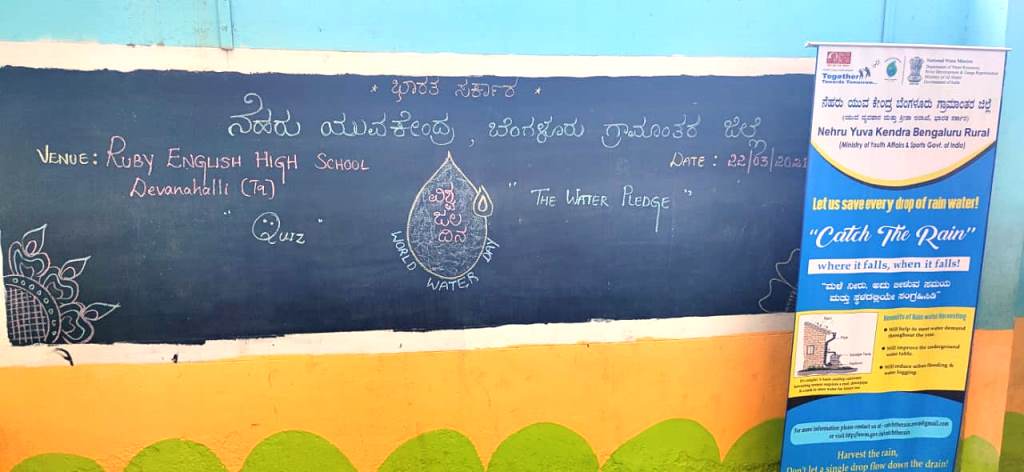 * ಭಾರತ ಸರ್ಕಾರ *
ನೆಹರು ಯುವಕೇಂದ್ರ, ಬೆಂಗಳೂರು ಗ್ರಾಮಾಂತರ ಜಿಲ್ಲೆ
VENUE: RUBY ENGLISH HIGH SCHOOL
DEVANAHALLI (TQ)
DATE: 22/03/2021
"Quiz"
ವಿಶ್ವ
ಜಲ
ದಿನ
WORLD WATER DAY
"THE WATER PLEDGE"
Together
Towards Tomorrow...
National Water Mission
Department of Water Resources,
River Development & Ganga Rejuvenation
Ministry of Jal Shakti
Government of India
ನೆಹರು ಯುವ ಕೇಂದ್ರ ಬೆಂಗಳೂರು ಗ್ರಾಮಾಂತರ ಜಿಲ್ಲೆ
Nehru Yuva Kendra Bengaluru Rural
(Ministry of Youth Affairs & Sports Govt. of India)
Let us save every drop of rain water!
"Catch The Rain"
where it falls, when it falls!
"ಮಳೆ ನೀರು, ಅದು ಬೀಳುವ ಸಮಯ
ಮತ್ತು ಸ್ಥಳದಲ್ಲಿಯೇ ಸಂಗ್ರಹಿಸಿಡಿ"
Benefits of Rain water Harvesting
Will help to meet water demand
throughout the year.
Will improve the underground
water table.
Will reduce urban flooding &
water logging.
For more information please contact us at
Harvest the rain,
Don't let a single drop flow down the drain!